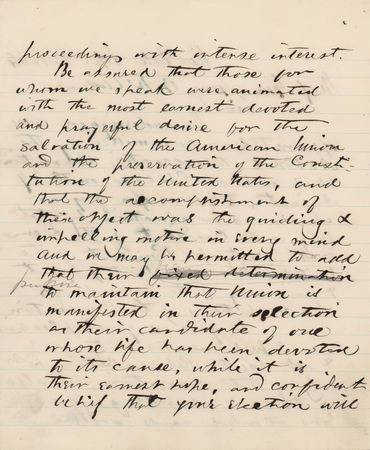 proceedings with intense interest.
Be assured that those for
whom we speak were animated
with the most earnest devoted
and prayerful desire for the
salvation of the American Union
and the preservation of the Consti-
tution of the United States, and
that the accomplishment of
their object was the guiding &
impelling motive in every mind
and we may be permitted to add
that their fixed determination
purpose
to maintain that Union is
manifested in their selection
as their candidate of one
whose life has been devoted
to its cause, while it is
their earnest hope, and confident
belief that your Election will